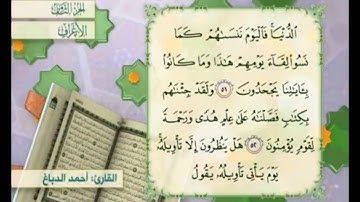 الجزء الثامن
الأعراف
ٱلدُّنْيَا ۚ فَٱلْيَوْمَ نَنسَىٰهُمْ كَمَا
نَسُوا۟ لِقَآءَ يَوْمِهِمْ هَٰذَا وَمَا كَانُوا۟
بِـَٔايَٰتِنَا يَجْحَدُونَ ٥١ وَلَقَدْ جِئْنَٰهُم
بِكِتَٰبٍ فَصَّلْنَٰهُ عَلَىٰ عِلْمٍ هُدًى وَرَحْمَةً
لِّقَوْمٍ يُؤْمِنُونَ ٥٢ هَلْ يَنظُرُونَ إِلَّا تَأْوِيلَهُۥ ۚ
يَوْمَ يَأْتِى تَأْوِيلُهُۥ يَقُولُ
القارئ: أحمد الدباغ